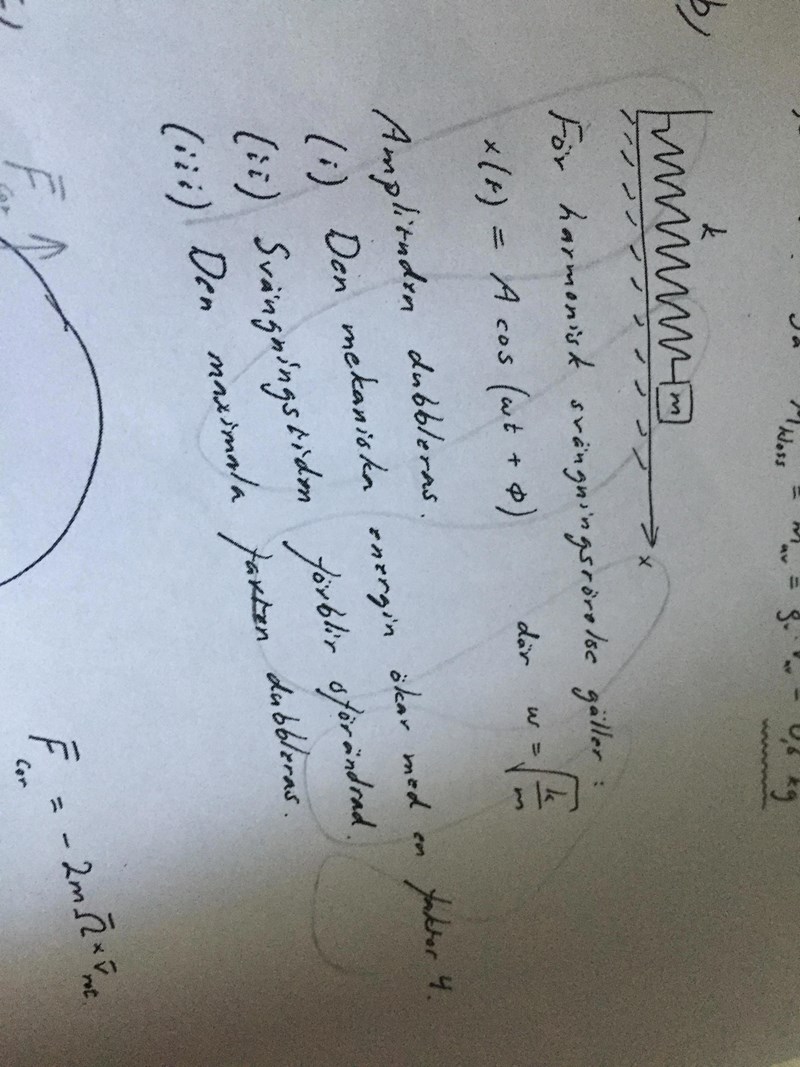 M_kloss = m_av = 0,6 kg
b)
k
m
x
För harmonisk svängningsrörelse gäller:
x(t) = A cos(ωt + φ) där ω = √(k/m)
Amplituden dubbleras.
(i) Den mekaniska energin ökar med en faktor 4.
(ii) Svängningstiden förblir oförändrad.
(iii) Den maximala farten dubbleras.
F̄cor
F̄cor = -2m Ω̄ × v̄rot.